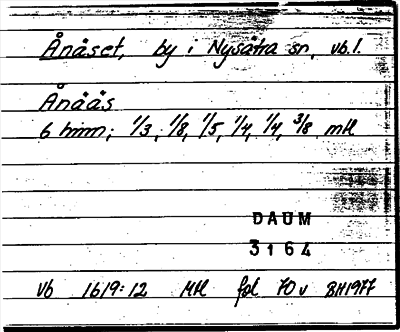 Ånäset, by i Nysätra sn, vb.l.
Ånääs
6 hmn; 1/3, 1/8, 1/5, 1/4, 1/4, 3/8 mtl
DAUM
3164
Vb 1619:12 Mtl fol 70v BH1977